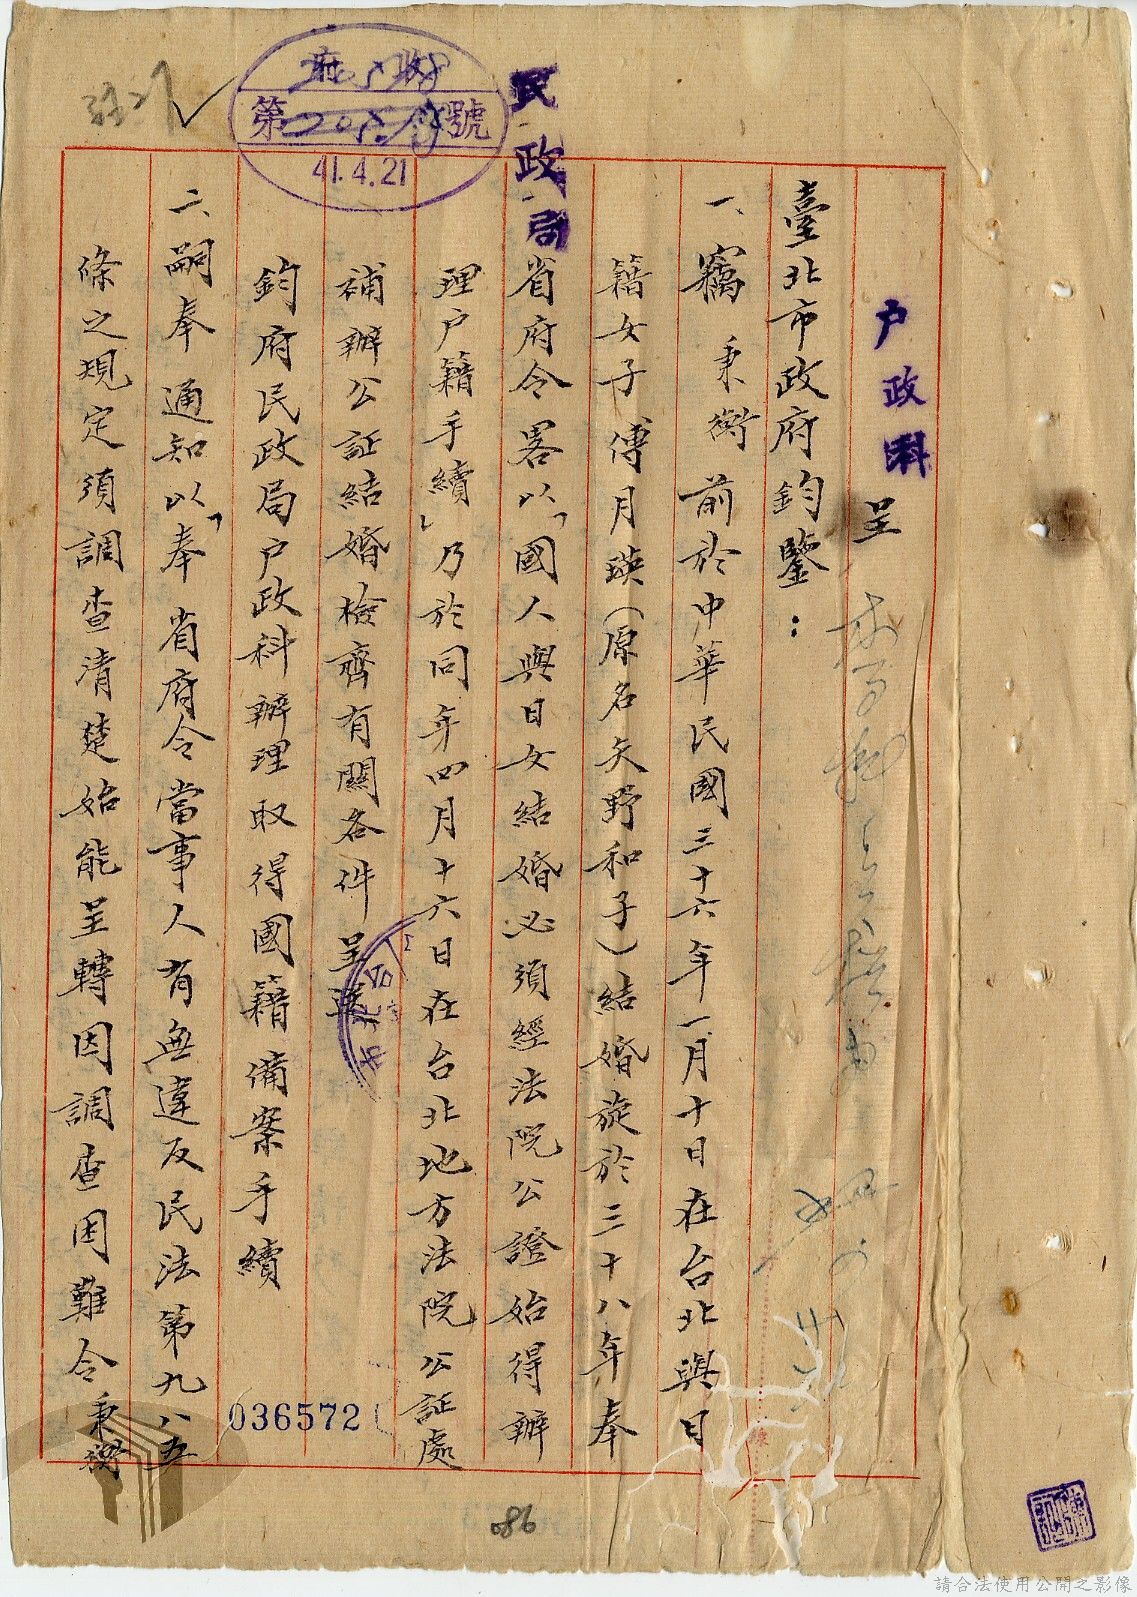 民政局
戶政科
府收
第號
41.4.21
呈
臺北市政府鈞鑒：
一、竊秉衡前於中華民國三十六年一月十日在台北與日
籍女子傅月瑛（原名矢野和子）結婚旋於三十八年奉
省府令畧以「國人與日女結婚必須經法院公證始得辦
理户籍手續」乃於同年四月十六日在台北地方法院公証處
補辦公証結婚檢齊有關各件呈送
鈞府民政局户政科辦理取得國籍備案手續
二、嗣奉通知以「奉省府令當事人有無違反民法第九八五
條之規定須調查清楚始能呈轉因調查困難令秉衡
036572
086
請合法使用公開之影像